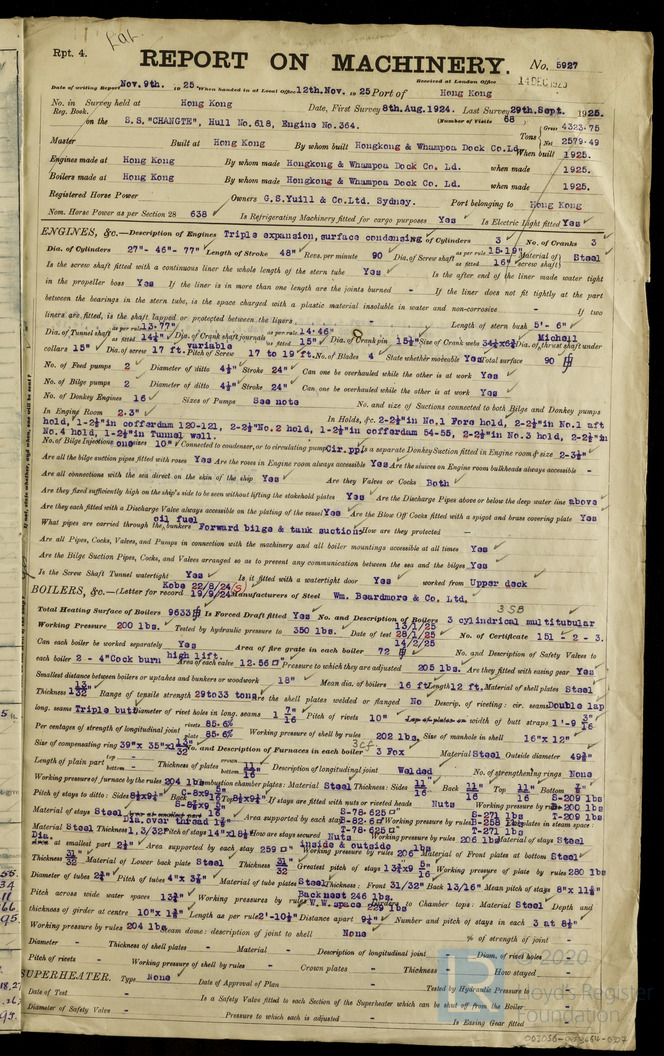 Rpt. 4.
REPORT ON MACHINERY.
No. 5927
Received at London Office 14 DEC 1925
Date of writing Report Nov. 9th. 19 25 When handed in at Local Office 12th. Nov. 19 25 Port of Hong Kong
No. in Reg. Book. Survey held at Hong Kong Date, First Survey 8th. Aug. 1924. Last Survey 29th. Sept. 1925.
(Number of Visits 68
on the S.S. "CHANGTE", Hull No. 618, Engine No. 364.
Tons Gross 4323.75 Net 2579.49
Master Built at Hong Kong By whom built Hongkong & Whampoa Dock Co. Ld. When built 1925.
Engines made at Hong Kong By whom made Hongkong & Whampoa Dock Co. Ld. when made 1925.
Boilers made at Hong Kong By whom made Hongkong & Whampoa Dock Co. Ld. when made 1925.
Registered Horse Power Owners G.S.Yuill & Co.Ltd. Sydney. Port belonging to Hong Kong
Nom. Horse Power as per Section 28 638 Is Refrigerating Machinery fitted for cargo purposes Yes Is Electric Light fitted Yes
ENGINES, &c.—Description of Engines Triple expansion, surface condensing No. of Cylinders 3 No. of Cranks 3
Dia. of Cylinders 27"- 46"- 77" Length of Stroke 48" Revs. per minute 90 Dia. of Screw shaft as per rule 15.19" as fitted 16" Material of screw shaft Steel
Is the screw shaft fitted with a continuous liner the whole length of the stern tube Yes Is the after end of the liner made water tight
in the propeller boss Yes If the liner is in more than one length are the joints burned - If the liner does not fit tightly at the part
between the bearings in the stern tube, is the space charged with a plastic material insoluble in water and non-corrosive - If two
liners are fitted, is the shaft lapped or protected between the liners - Length of stern bush 5'- 6"
Dia. of Tunnel shaft as per rule 13.77" as fitted 14¼" Dia. of Crank shaft journals as per rule 14.46" as fitted 15" Dia. of Crank pin 15¼" Size of Crank webs Dia. of thrust shaft under Michell
collars 15" Dia. of screw 17 ft. Pitch of Screw variable 17 to 19 ft. No. of Blades 4 State whether moveable Yes Total surface 90
No. of Feed pumps 2 Diameter of ditto 4½" Stroke 24" Can one be overhauled while the other is at work Yes
No. of Bilge pumps 2 Diameter of ditto 4½" Stroke 24" Can one be overhauled while the other is at work Yes
No. of Donkey Engines 16 Sizes of Pumps See note No. and size of Suctions connected to both Bilge and Donkey pumps
In Engine Room 2-3" In Holds, &c. 2-2½"in No.1 Fore hold, 2-2½"in No.1 aft
hold, 1-2½"in cofferdam 120-121, 2-2½"No.2 hold, 1-2½"in cofferdam 54-55, 2-2½"in No.3 hold, 2-2½"in
No.4 hold, 1-2½"in Tunnel well.
No. of Bilge Injections one sizes 10" Connected to condenser, or to circulating pump Cir.pp. Is a separate Donkey Suction fitted in Engine room & size 2-3½"
Are all the bilge suction pipes fitted with roses Yes Are the roses in Engine room always accessible Yes Are the sluices on Engine room bulkheads always accessible -
Are all connections with the sea direct on the skin of the ship Yes Are they Valves or Cocks Both
Are they fixed sufficiently high on the ship's side to be seen without lifting the stokehold plates Yes Are the Discharge Pipes above or below the deep water line above
Are they each fitted with a Discharge Valve always accessible on the plating of the vessel Yes Are the Blow Off Cocks fitted with a spigot and brass covering plate Yes
What pipes are carried through the oil fuel bunkers Forward bilge & tank suctions How are they protected -
Are all Pipes, Cocks, Valves, and Pumps in connection with the machinery and all boiler mountings accessible at all times Yes
Are the Bilge Suction Pipes, Cocks, and Valves arranged so as to prevent any communication between the sea and the bilges Yes
Is the Screw Shaft Tunnel watertight Yes Is it fitted with a watertight door Yes worked from Upper deck
BOILERS, &c.—(Letter for record (S) Kobe 22/8/24 19/9/24 Manufacturers of Steel Wm. Beardmore & Co. Ltd.
3 SB
Total Heating Surface of Boilers 9633 Is Forced Draft fitted Yes No. and Description of Boilers 3 cylindrical multitubular
Working Pressure 200 lbs. Tested by hydraulic pressure to 350 lbs. Date of test 13/1/25 28/1/25 14/2/25 No. of Certificate 151 - 2 - 3.
Can each boiler be worked separately Yes Area of fire grate in each boiler 72 No. and Description of Safety Valves to
each boiler 2 - 4"Cock burn high lift. Area of each valve 12.56 Pressure to which they are adjusted 205 lbs. Are they fitted with easing gear Yes
Smallest distance between boilers or uptakes and bunkers or woodwork 18" Mean dia. of boilers 16 ft Length 12 ft. Material of shell plates Steel
Thickness Range of tensile strength 29to33 tons Are the shell plates welded or flanged No Descrip. of riveting: cir. seams Double lap
long. seams Triple butt Diameter of rivet holes in long. seams 1 7/16 Pitch of rivets 10" Lap of plates or width of butt straps 1'-9 3/16
Per centages of strength of longitudinal joint rivets 85.6% plate 85.6% Working pressure of shell by rules 202 lbs. Size of manhole in shell 16"x 12"
Size of compensating ring No. and Description of Furnaces in each boiler 3 Fox 3cf Material Steel Outside diameter
Length of plain part top - bottom - Thickness of plates crown 11/16 bottom 11/16 Description of longitudinal joint Welded No. of strengthening rings None
Working pressure of furnace by the rules 204 lbs Combustion chamber plates: Material Steel Thickness: Sides 11/16 Back 11/16 Top 11/16 Bottom
Pitch of stays to ditto: Sides Back Top If stays are fitted with nuts or riveted heads Nuts Working pressure by rules S-209 lbs B-200 lbs T-209 lbs
Material of stays Steel Dia. over thread Area supported by each stay S-78.625 S-82.66 T-78.625 Working pressure by rules S-271 lbs B-258 lbs T-271 lbs End plates in steam space:
Material Steel Thickness 1,3/32 Pitch of stays How are stays secured Nuts inside & outside Working pressure by rules 206 lbs Material of stays Steel
Dia. at smallest part Area supported by each stay 259 Working pressure by rules 206 lbs Material of Front plates at bottom Steel
Thickness 31/32" Material of Lower back plate Steel Thickness 31/32" Greatest pitch of stays Working pressure of plate by rules 280 lbs
Diameter of tubes Pitch of tubes Material of tube plates Steel Thickness: Front 31/32" Back 13/16" Mean pitch of stays
Pitch across wide water spaces Working pressures by rules Back nest 246 lbs. W.W. space 229 lbs Girders to Chamber tops: Material Steel Depth and
thickness of girder at centre Length as per rule Distance apart Number and pitch of stays in each
Working pressure by rules 204 lbs Steam dome: description of joint to shell None % of strength of joint -
Diameter - Thickness of shell plates - Material - Description of longitudinal joint - Diam. of rivet holes -
Pitch of rivets - Working pressure of shell by rules - Crown plates - Thickness - How stayed -
SUPERHEATER. Type None Date of Approval of Plan - Tested by Hydraulic Pressure to -
Date of Test - Is a Safety Valve fitted to each Section of the Superheater which can be shut off from the Boiler -
Diameter of Safety Valve - Pressure to which each is adjusted - Is Easing Gear fitted -
© 2020
Lloyd's Register
Foundation